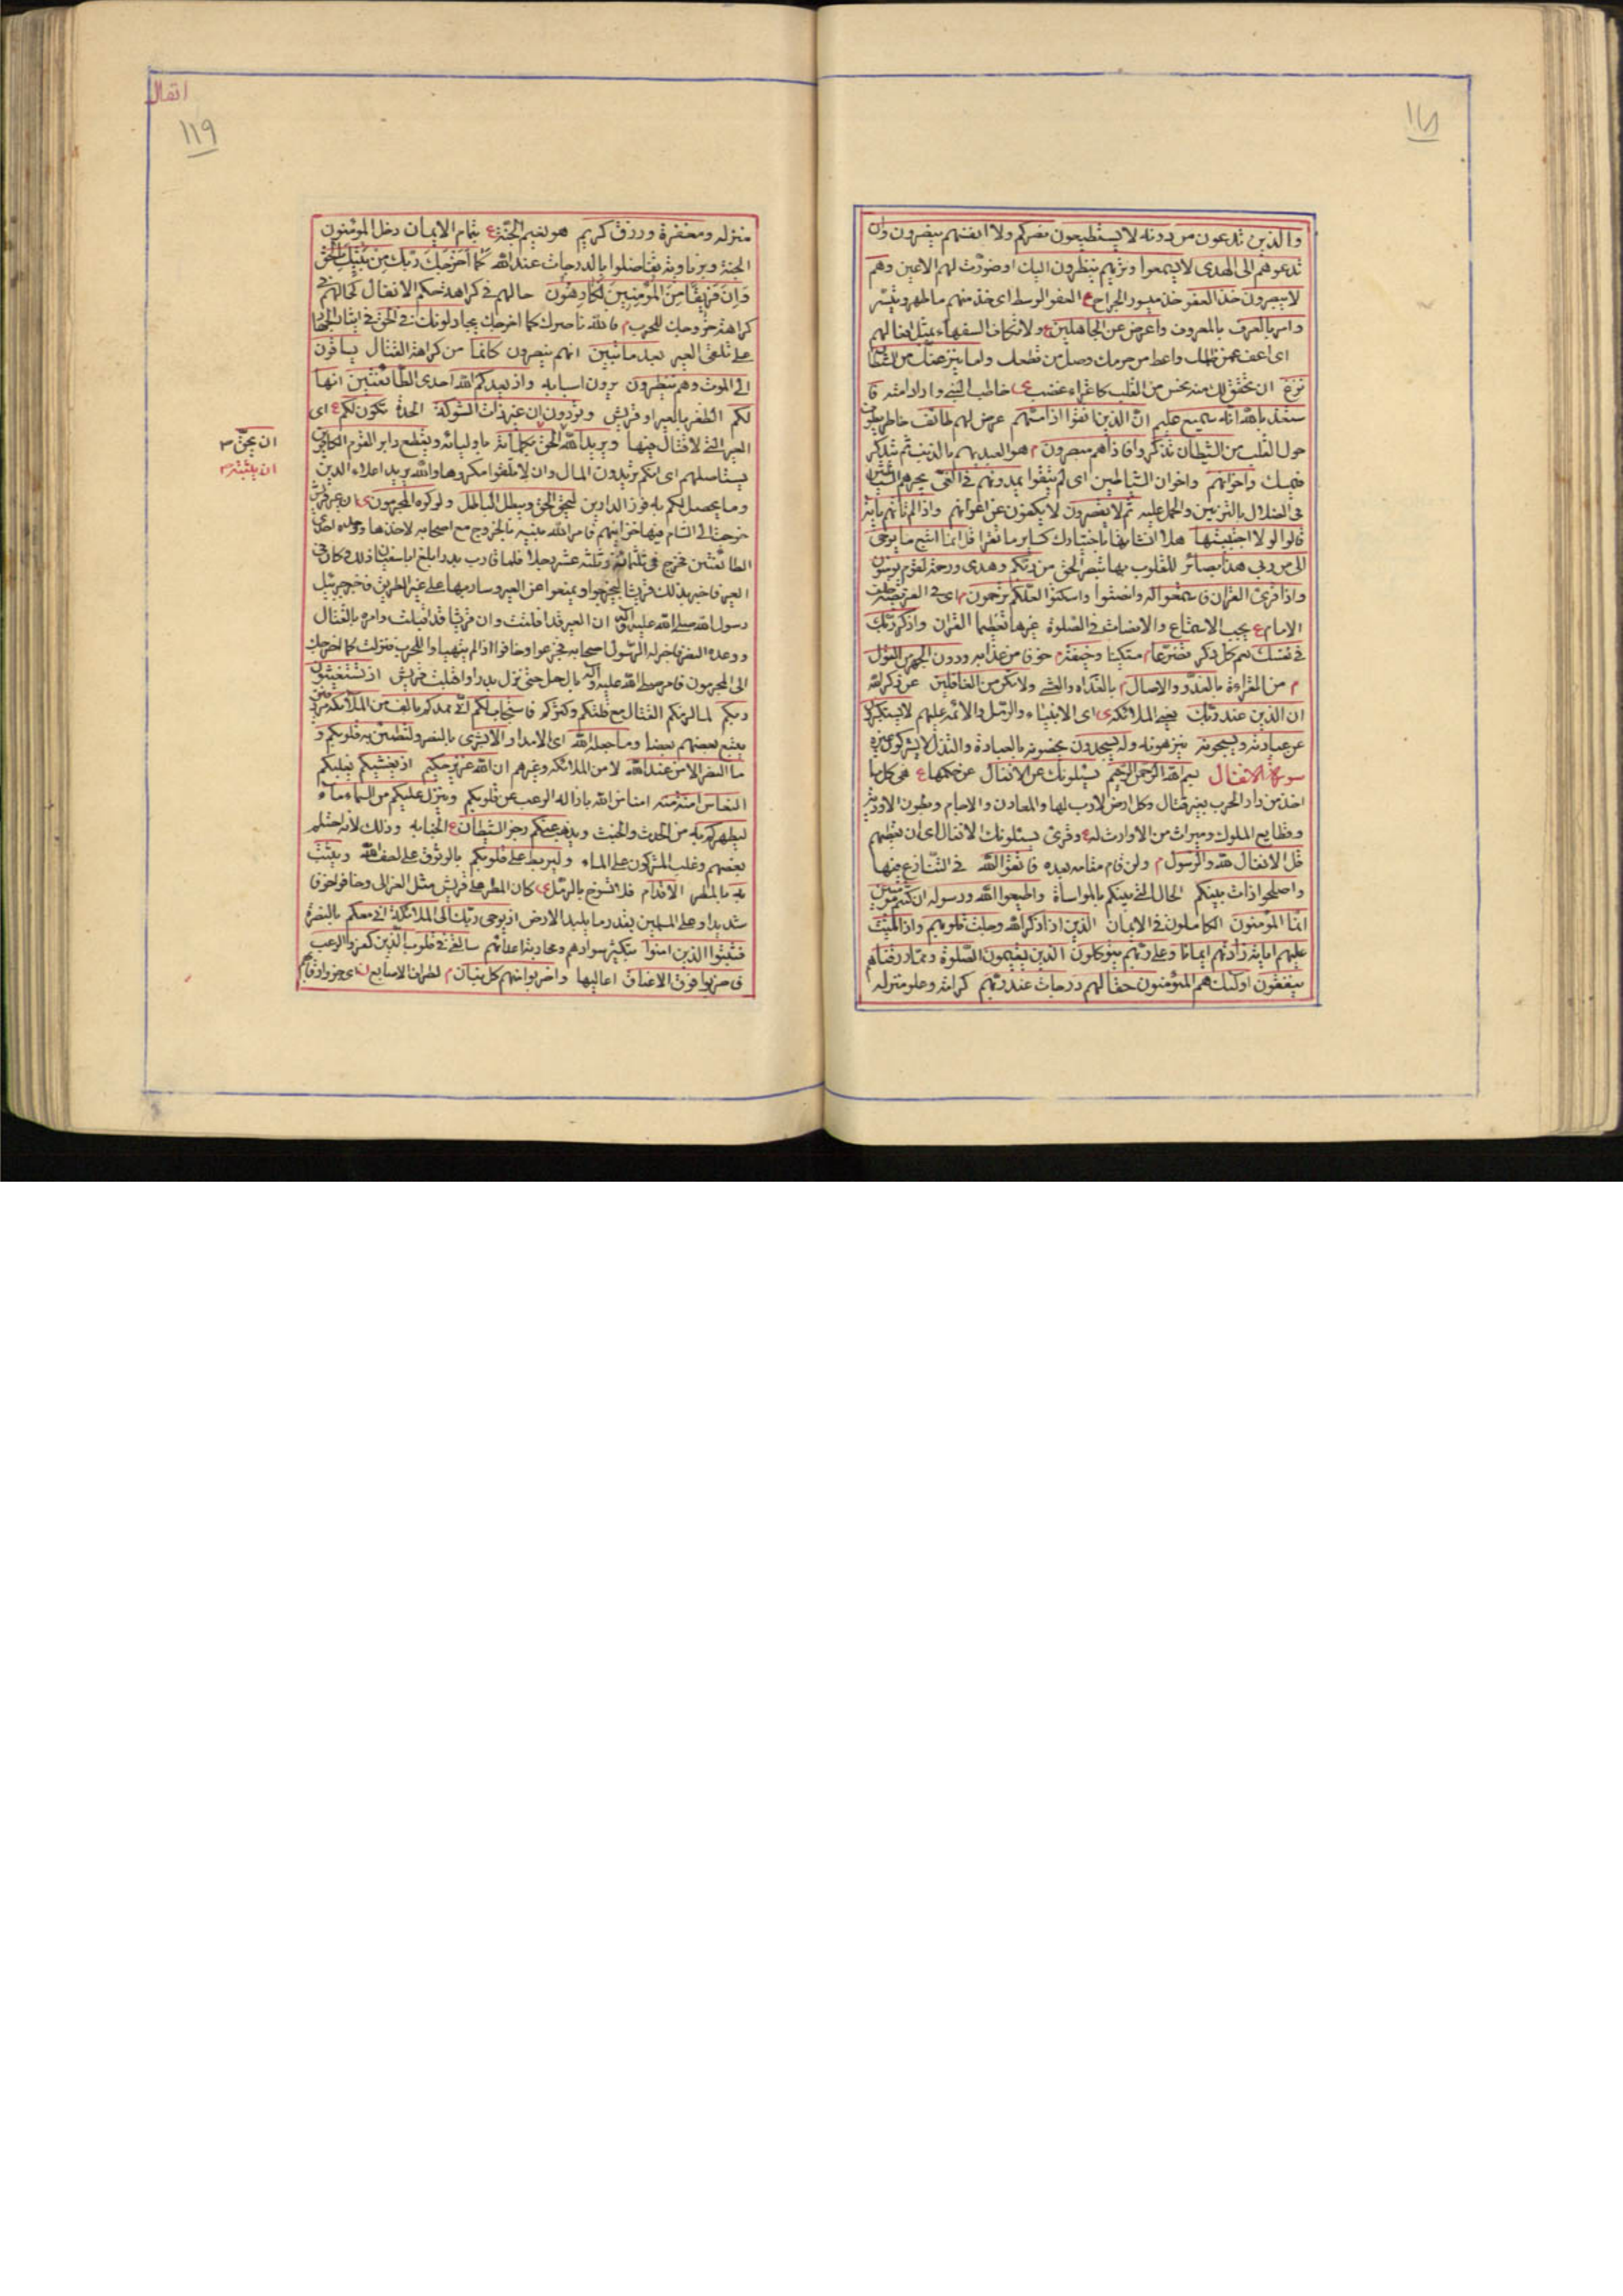 والذين تدعون من دونه لا يستطيعون نصركم ولا انفسهم ينصرون وان
تدعوهم الى الهدى لا يسمعوا وتريهم ينظرون اليك او صورت لهم الاعين وهم
لا يبصرون خذ العفو خذ ميسور اخراج ع العفو الوسط اى خذ منهم ما ظهر وتيسر
وامر بالعرف بالمعروف واعرض عن الجاهلين ع ولا تكاف السفهاء بمثل افعالهم
اى اعف عمن ظلمك واعط من حرمك وصل من قطعك واما ينزغنك من الشيطان
نزغ ان نخس فى القلب كاغراء غضب خاطب النبى واراد امته فا
ستعذ بالله انه سميع عليم ان الذين اتقوا اذا مسهم عرض لهم طائف خاطر يطوف
حول القلب من الشيطان تذكروا فاذا هم مبصرون م هو العبد يهم بالذنب ثم يتذكر
فيمسك واخوانهم واخوان الشياطين اى لم يتقوا يمدونهم فى الغى يجرهم الشياطين
فى الضلال بالتزيين والحمل عليه ثم لا يقصرون لا يكفون عن اغوائهم واذا لم تاتهم باية
قالوا لولا اجتبيتها هلا انشاتها باختيارك كساير ما تقرأ قل انما اتبع ما يوحى
الى من ربى هذا بصائر للقلوب بها تبصر الحق من ربكم وهدى ورحمة لقوم يومنون
واذا قرئ القران فاستمعوا له وانصتوا واسكتوا لعلكم ترحمون اى فى الفريضة خلف
الامام ع يجب الاستماع والانصات فى الصلوة غيرها تعظيما القران واذكر ربك
فى نفسك يعم كل ذكر تضرعا م مستكينا وخيفة م خوفا من عذابه ودون الجهر من القول
م من القراءة بالغدو والاصال م بالغداة والعشى ولا تكن من الغافلين عن ذكر الله
ان الذين عند ربك يعنى الملائكة اى الانبياء والرسل والائمة عليهم لا يستكبرون
عن عبادته ويسبحونه ينزهونه وله يسجدون يخصونه بالعبادة والتذلل لا يشركون غيره
سورة الانفال بسم الله الرحمن الرحيم يسئلونك عن الانفال عن حكمها ع هى كل ما
اخذ من دار الحرب بغير قتال وكل ارض لا رب لها والمعادن والاجام وبطون الاودية
وقطايع الملوك وميراث من لا وارث له ع وقرئ يسئلونك الانفال اى ان تعطيهم
قل الانفال لله والرسول م ولمن قام مقامه بعده فاتقوا الله فى التنازع فيها
واصلحوا ذات بينكم الحال التى بينكم بالمواساة واطيعوا الله ورسوله ان كنتم مومنين
انما المؤمنون الكاملون فى الايمان الذين اذا ذكر الله وجلت قلوبهم واذا تليت
عليهم اياته زادتهم ايمانا وعلى ربهم يتوكلون الذين يقيمون الصلوة ومما رزقناهم
ينفقون اولئك هم المؤمنون حقا لهم درجات عند ربهم كرامة وعلو منزله
انفال
١١٩
منزله ومغفرة ورزق كريم هو نعيم الجنة ع بتمام الايمان دخل المومنون
الجنة وبزيادته تفاضلوا بالدرجات عند الله كما اخرجك ربك من بيتك بالحق
وان فريقا من المومنين لكارهون حالهم فى كراهة حكم الانفال كحالهم فى
كراهة خروجك للحرب م فالله ناصرك كما اخرجك يجادلونك فى الحق فى ايثار الجهاد
على تلقى العير بعد ما تبين انهم ينصرون كانما من كراهة القتال يساقون
الى الموت وهم ينظرون يرون اسبابه واذ يعدكم الله احدى الطائفتين انها
لكم الظفر بالعير او قريش وتودون ان غير ذات الشوكة الحدة تكون لكم ع اى
العير التى لا قتال فيها ويريد الله الحق بكلماته باوليائه ويقطع دابر القوم الكافرين
يستاصلهم اى انكم تريدون المال وان لا تلقوا مكروها والله يريد اعلاء الدين
وما يحصل لكم به فوز الدارين ليحق الحق ويبطل الباطل ولو كره المجرمون ان عير قريش
خرجت الى الشام فيها خزاينهم فامر الله نبيه بالخروج مع اصحابه لاخذها ووعده احدى
الطائفتين فخرج فى ثلثمائة وثلثة عشر رجلا فلما قارب بدرا بلغ ابا سفيان ذلك وكان فى
العير فاخبر بذلك قريشا ليخرجوا ويمنعوا عن العير وسار بها على غير الطريق فاخبر جبرئيل
رسول الله صلى الله عليه واله ان العير قد افلتت وان قريشا قد اقبلت وامره بالقتال
ووعده النصر فاخبر الرسول اصحابه فجزعوا وخافوا اذ لم يتهياوا للحرب فنزلت كما اخرجك
الى المجرمون فامر صلى الله عليه واله بالرحل حتى نزل بدرا واقبلت قريش اذ تستغيثون
ربكم لما لزمكم القتال مع قلتكم وكثرتهم فاستجاب لكم انى ممدكم بالف من الملائكة مردفين
يتبع بعضهم بعضا وما جعله الله اى الامداد الا بشرى بالنصر ولتطمئن به قلوبكم و
ما النصر الا من عند الله لا من الملائكة وغيرهم ان الله عزيز حكيم اذ يغشيكم يغلبكم
النعاس امنة منه امنا من الله بازاله الرعب عن قلوبكم وينزل عليكم من السماء ماء
ليطهركم به من الحدث والخبث ويذهب عنكم رجز الشيطان ع الجنابه وذلك لانه احتلم
بعضهم وغلب المشركون على الماء وليربط على قلوبكم بالوثوق على لطف الله ويثبت
به بالمطر الاقدام فلا تسوخ بالرمل كان المطر على قريش مثل العزالى وخافوا خوفا
شديدا وعلى المسلمين بقدر ما يلبد الارض اذ يوحى ربك الى الملائكة انى معكم بالنصرة
فثبتوا الذين امنوا بتكثير سوادهم ومحاربة اعدائهم سالقى فى قلوب الذين كفروا الرعب
فاضربوا فوق الاعناق اعاليها واضربوا منهم كل بنان م اطراف الاصابع اى جزوا رقابهم
ان يحق
ان يثبته